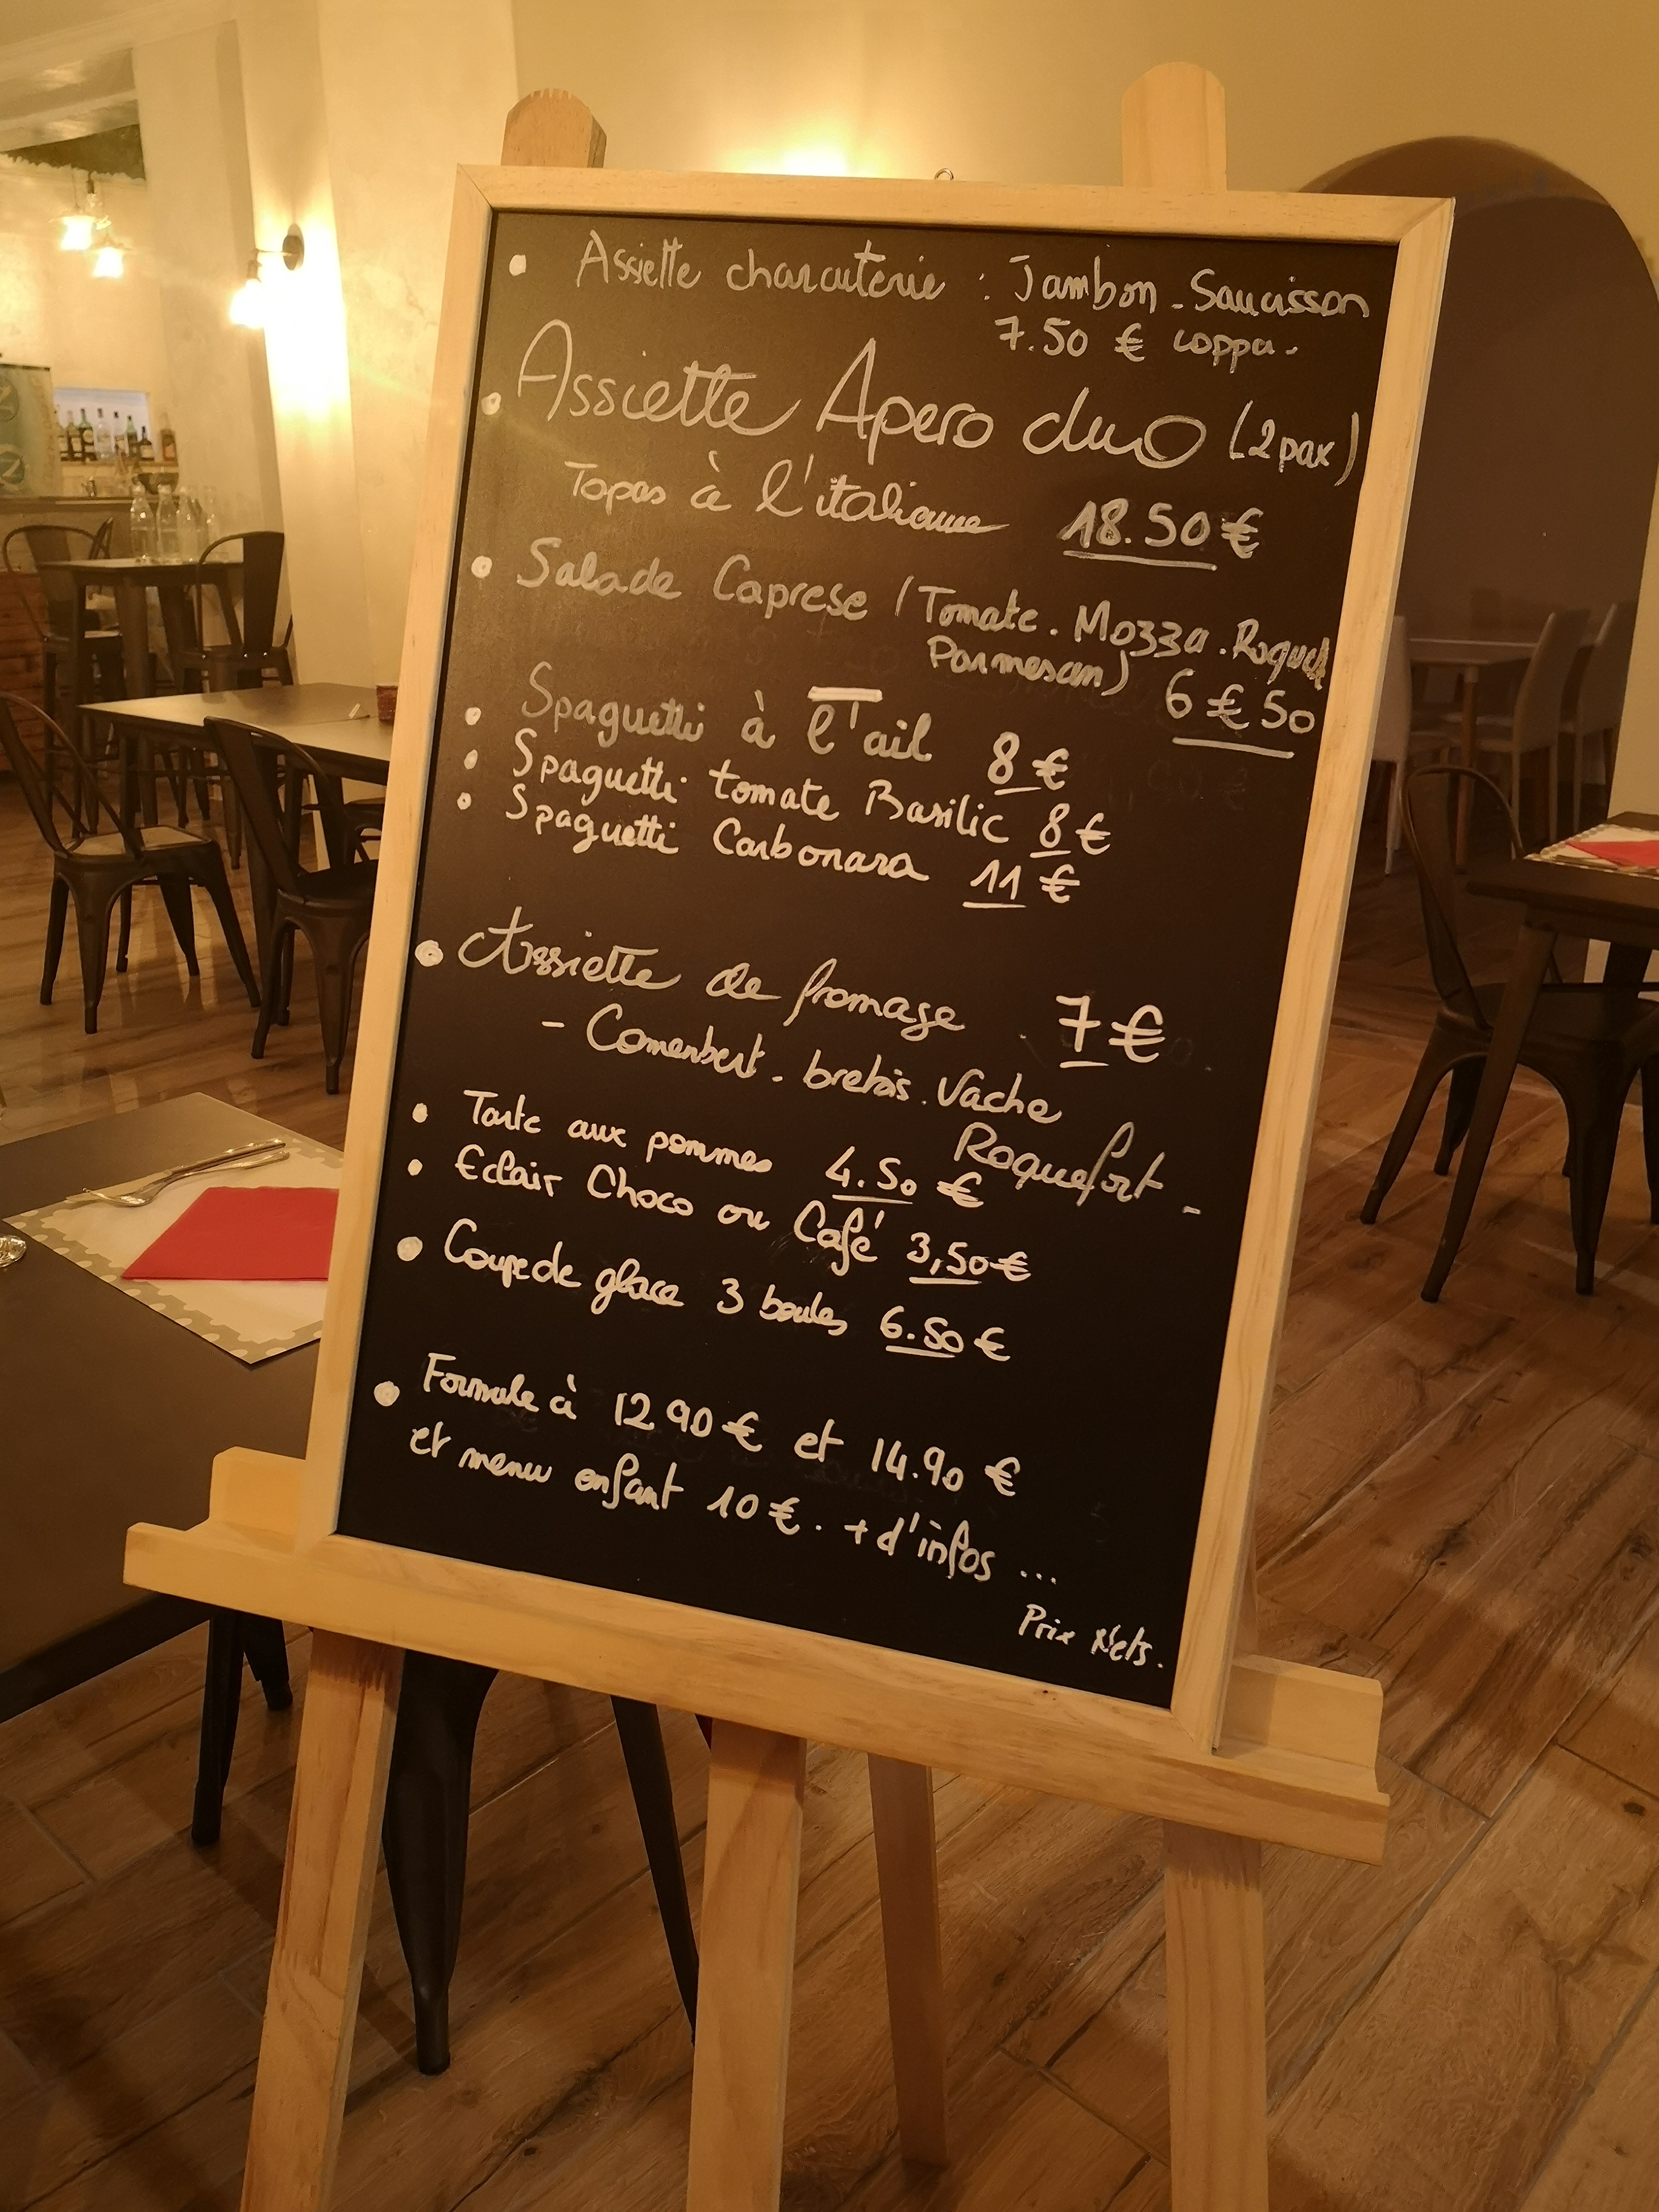 • Assiette charcuterie : Jambon - Saucisson
7.50 € coppa -
• Assiette Apero duo (2 pax)
Tapas à l'italienne 18.50 €
• Salade Caprese (Tomate. Mozza. Roquet
Parmesan) 6 € 50
• Spaguetti à l'ail 8 €
• Spaguetti tomate Basilic 8 €
• Spaguetti Carbonara 11 €
• Assiette de fromage . 7 €
- Camenbert - brebis . Vache
Roquefort -
• Tarte aux pommes 4.50 €
• Eclair Choco ou Café 3,50 €
• Coupe de glace 3 boules 6.50 €
• Formule à 12 90 € et 14.90 €
et menu enfant 10 €. + d'infos ...
Prix Nets.